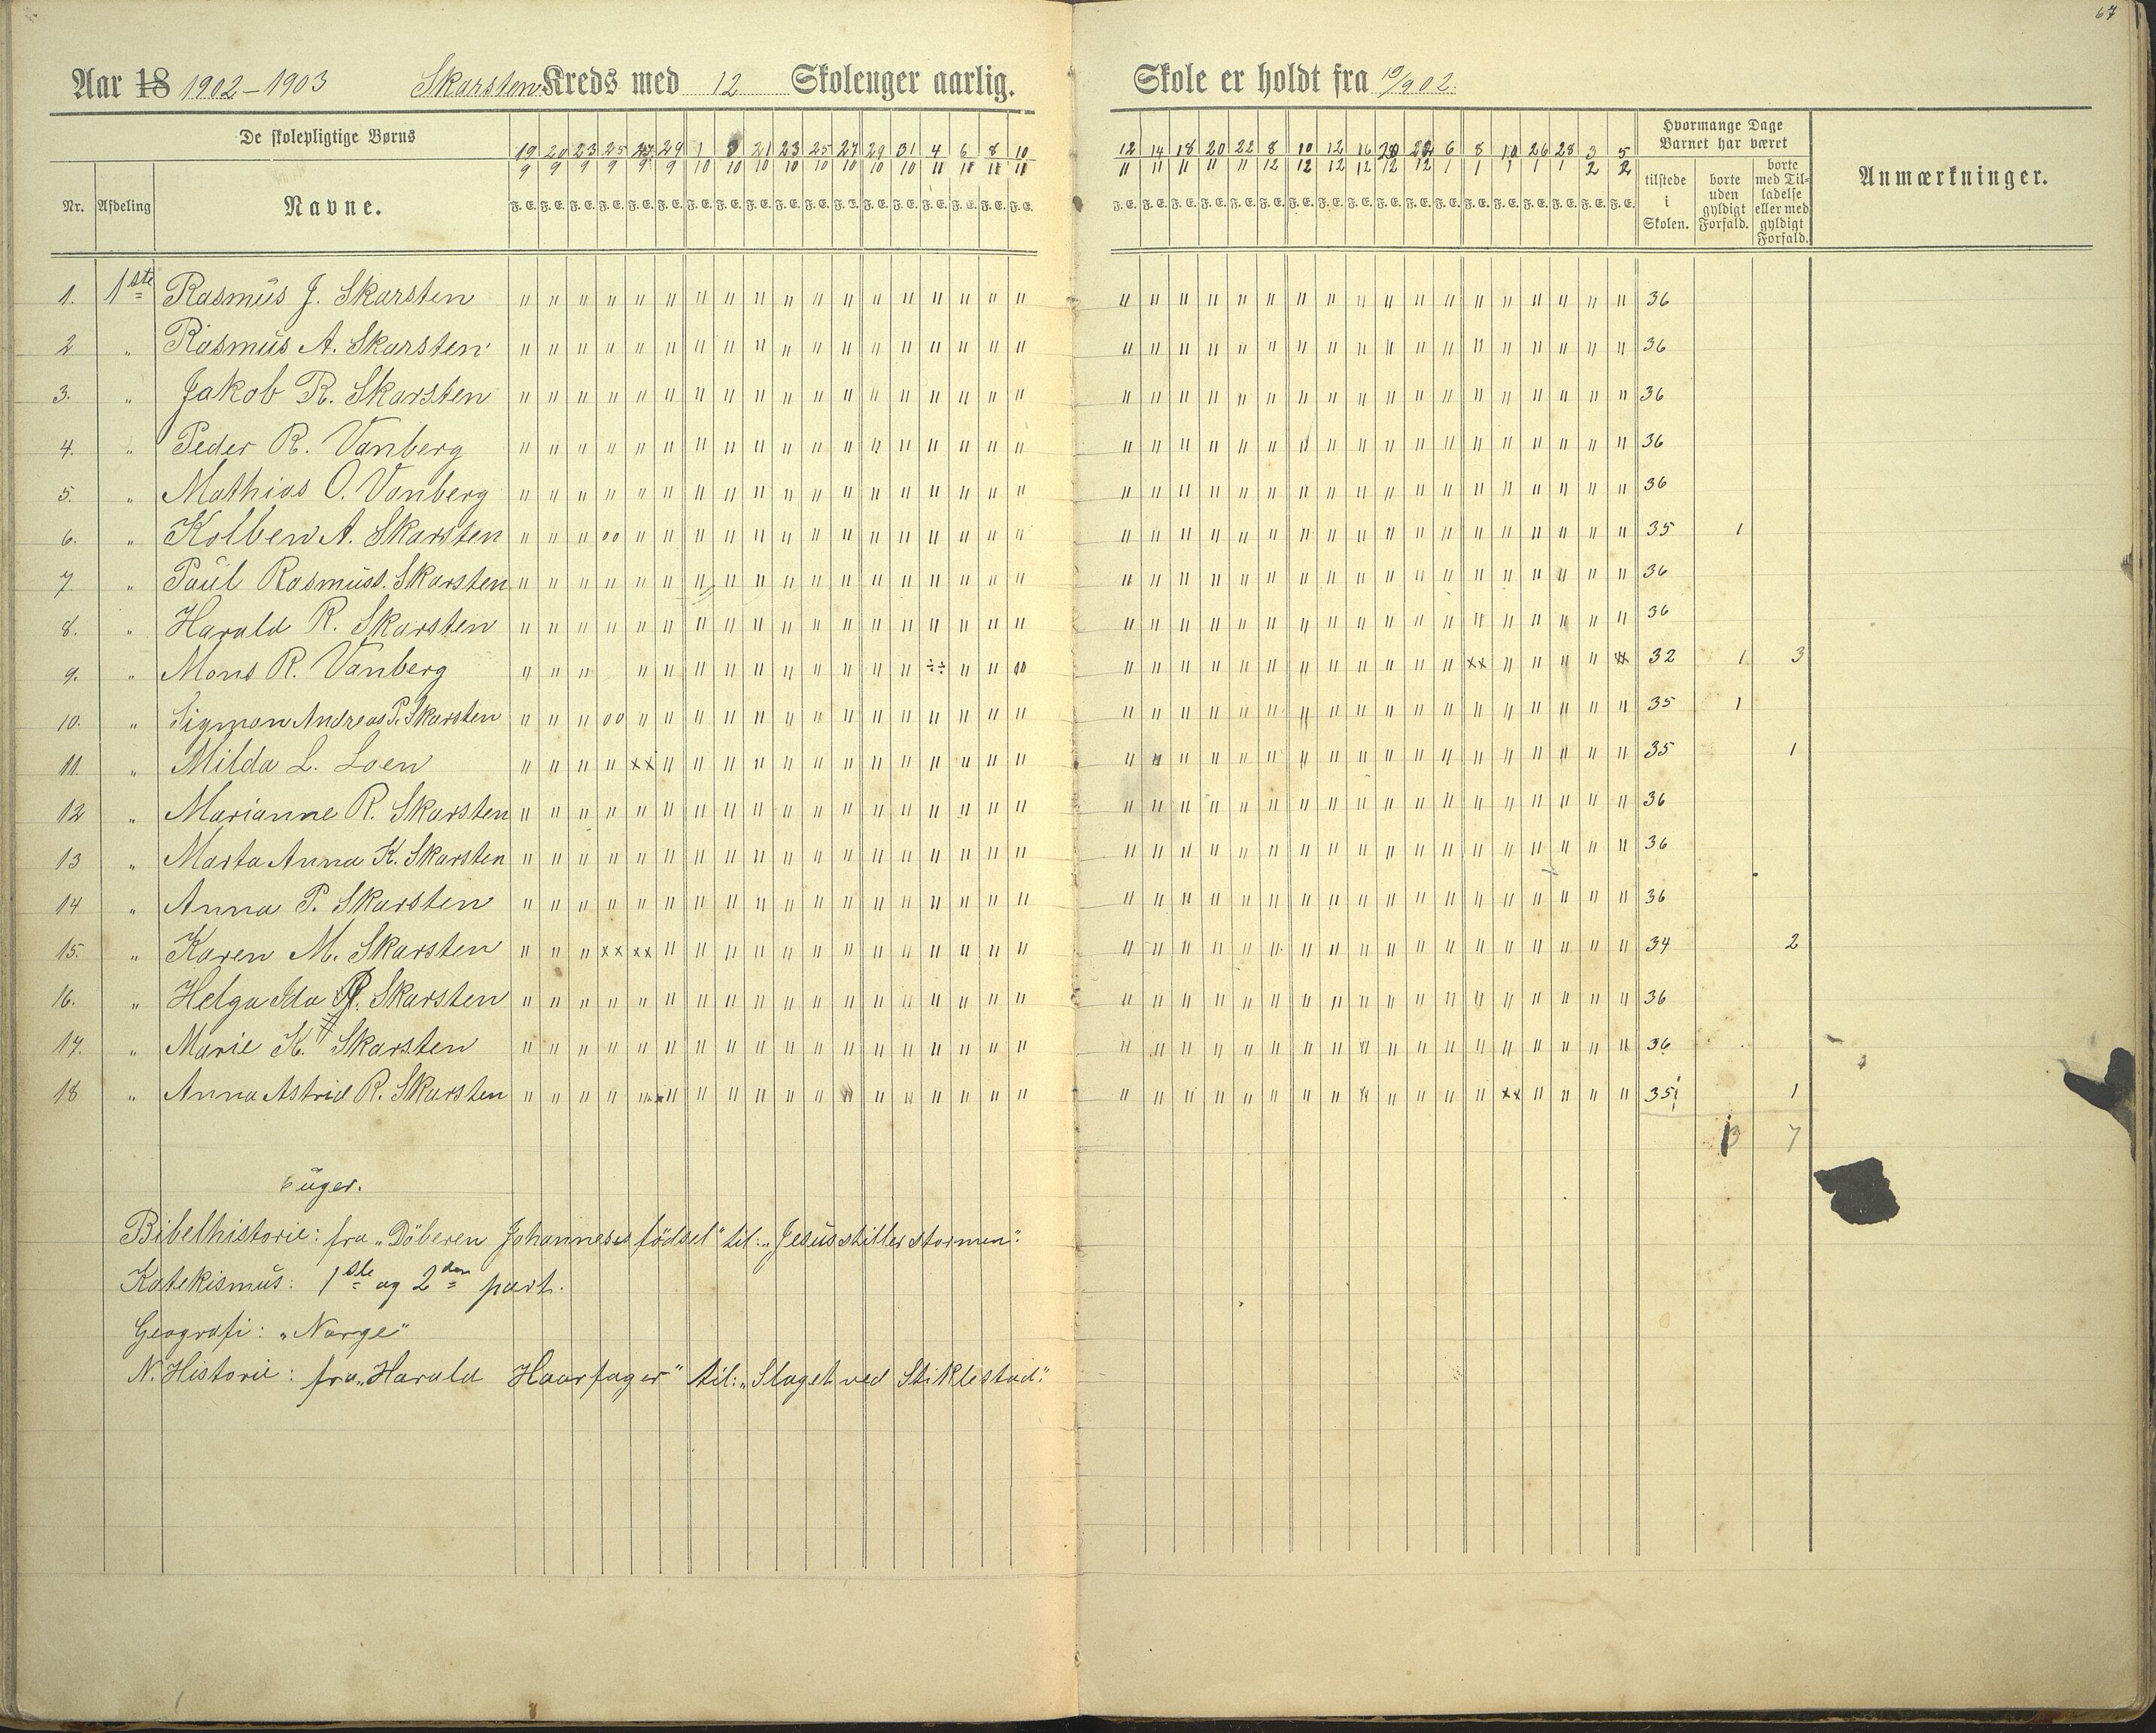 67
Aar 18 1902–1903 Skarsten Kreds med 12 Skoleuger aarlig. Skole er holdt fra 19/9 02.
De skolepligtige Børns
Hvormange Dage Barnet har været
Nr. Afdeling Navne.
19/9 20/9 23/9 25/9 27/9 29/9 1/10 21/10 23/10 25/10 27/10 29/10 31/10 4/11 6/11 8/11 10/11
12/11 14/11 18/11 20/11 22/11 8/12 10/12 12/12 16/12 22/12 6/1 8/1 26/1 28/1 3/2 5/2
F. E.
tilstede i Skolen.
borte uden gyldigt Forfald.
borte med Tilladelse eller med gyldigt Forfald.
Anmærkninger.
1. 1ste Rasmus J. Skarsten 36
2 " Rasmus A. Skarsten 36
3. " Jakob R. Skarsten 36
4. " Peder R. Vanberg 36
5. " Mathias O. Vanberg 36
6. " Kolben A. Skarsten 35 1
7. " Paul Rasmuss. Skarsten 36
8. " Harald R. Skarsten 36
9. " Mons R. Vanberg 32 1 3
10. " Sigmon Andreas P. Skarsten 35 1
11. " Milda L. Loen 35 1
12 " Marianne R. Skarsten 36
13 " Marta Anna K. Skarsten 36
14 " Anna P. Skarsten 36
15. " Karen M. Skarsten 34 2
16. " Helga Ida R. Skarsten 36
17. " Marie K. Skarsten 36
18 " Anna Astrid R. Skarsten 35 1
3 7
6 uger.
Bibelhistorie: fra „Döberen Johannes's födsel" til: „Jesus stiller stormen".
Katekismus: 1ste og 2den part.
Geografi: „Norge"
N. Historie: fra „Harald Haarfager" til: „Slaget ved Stiklestad".